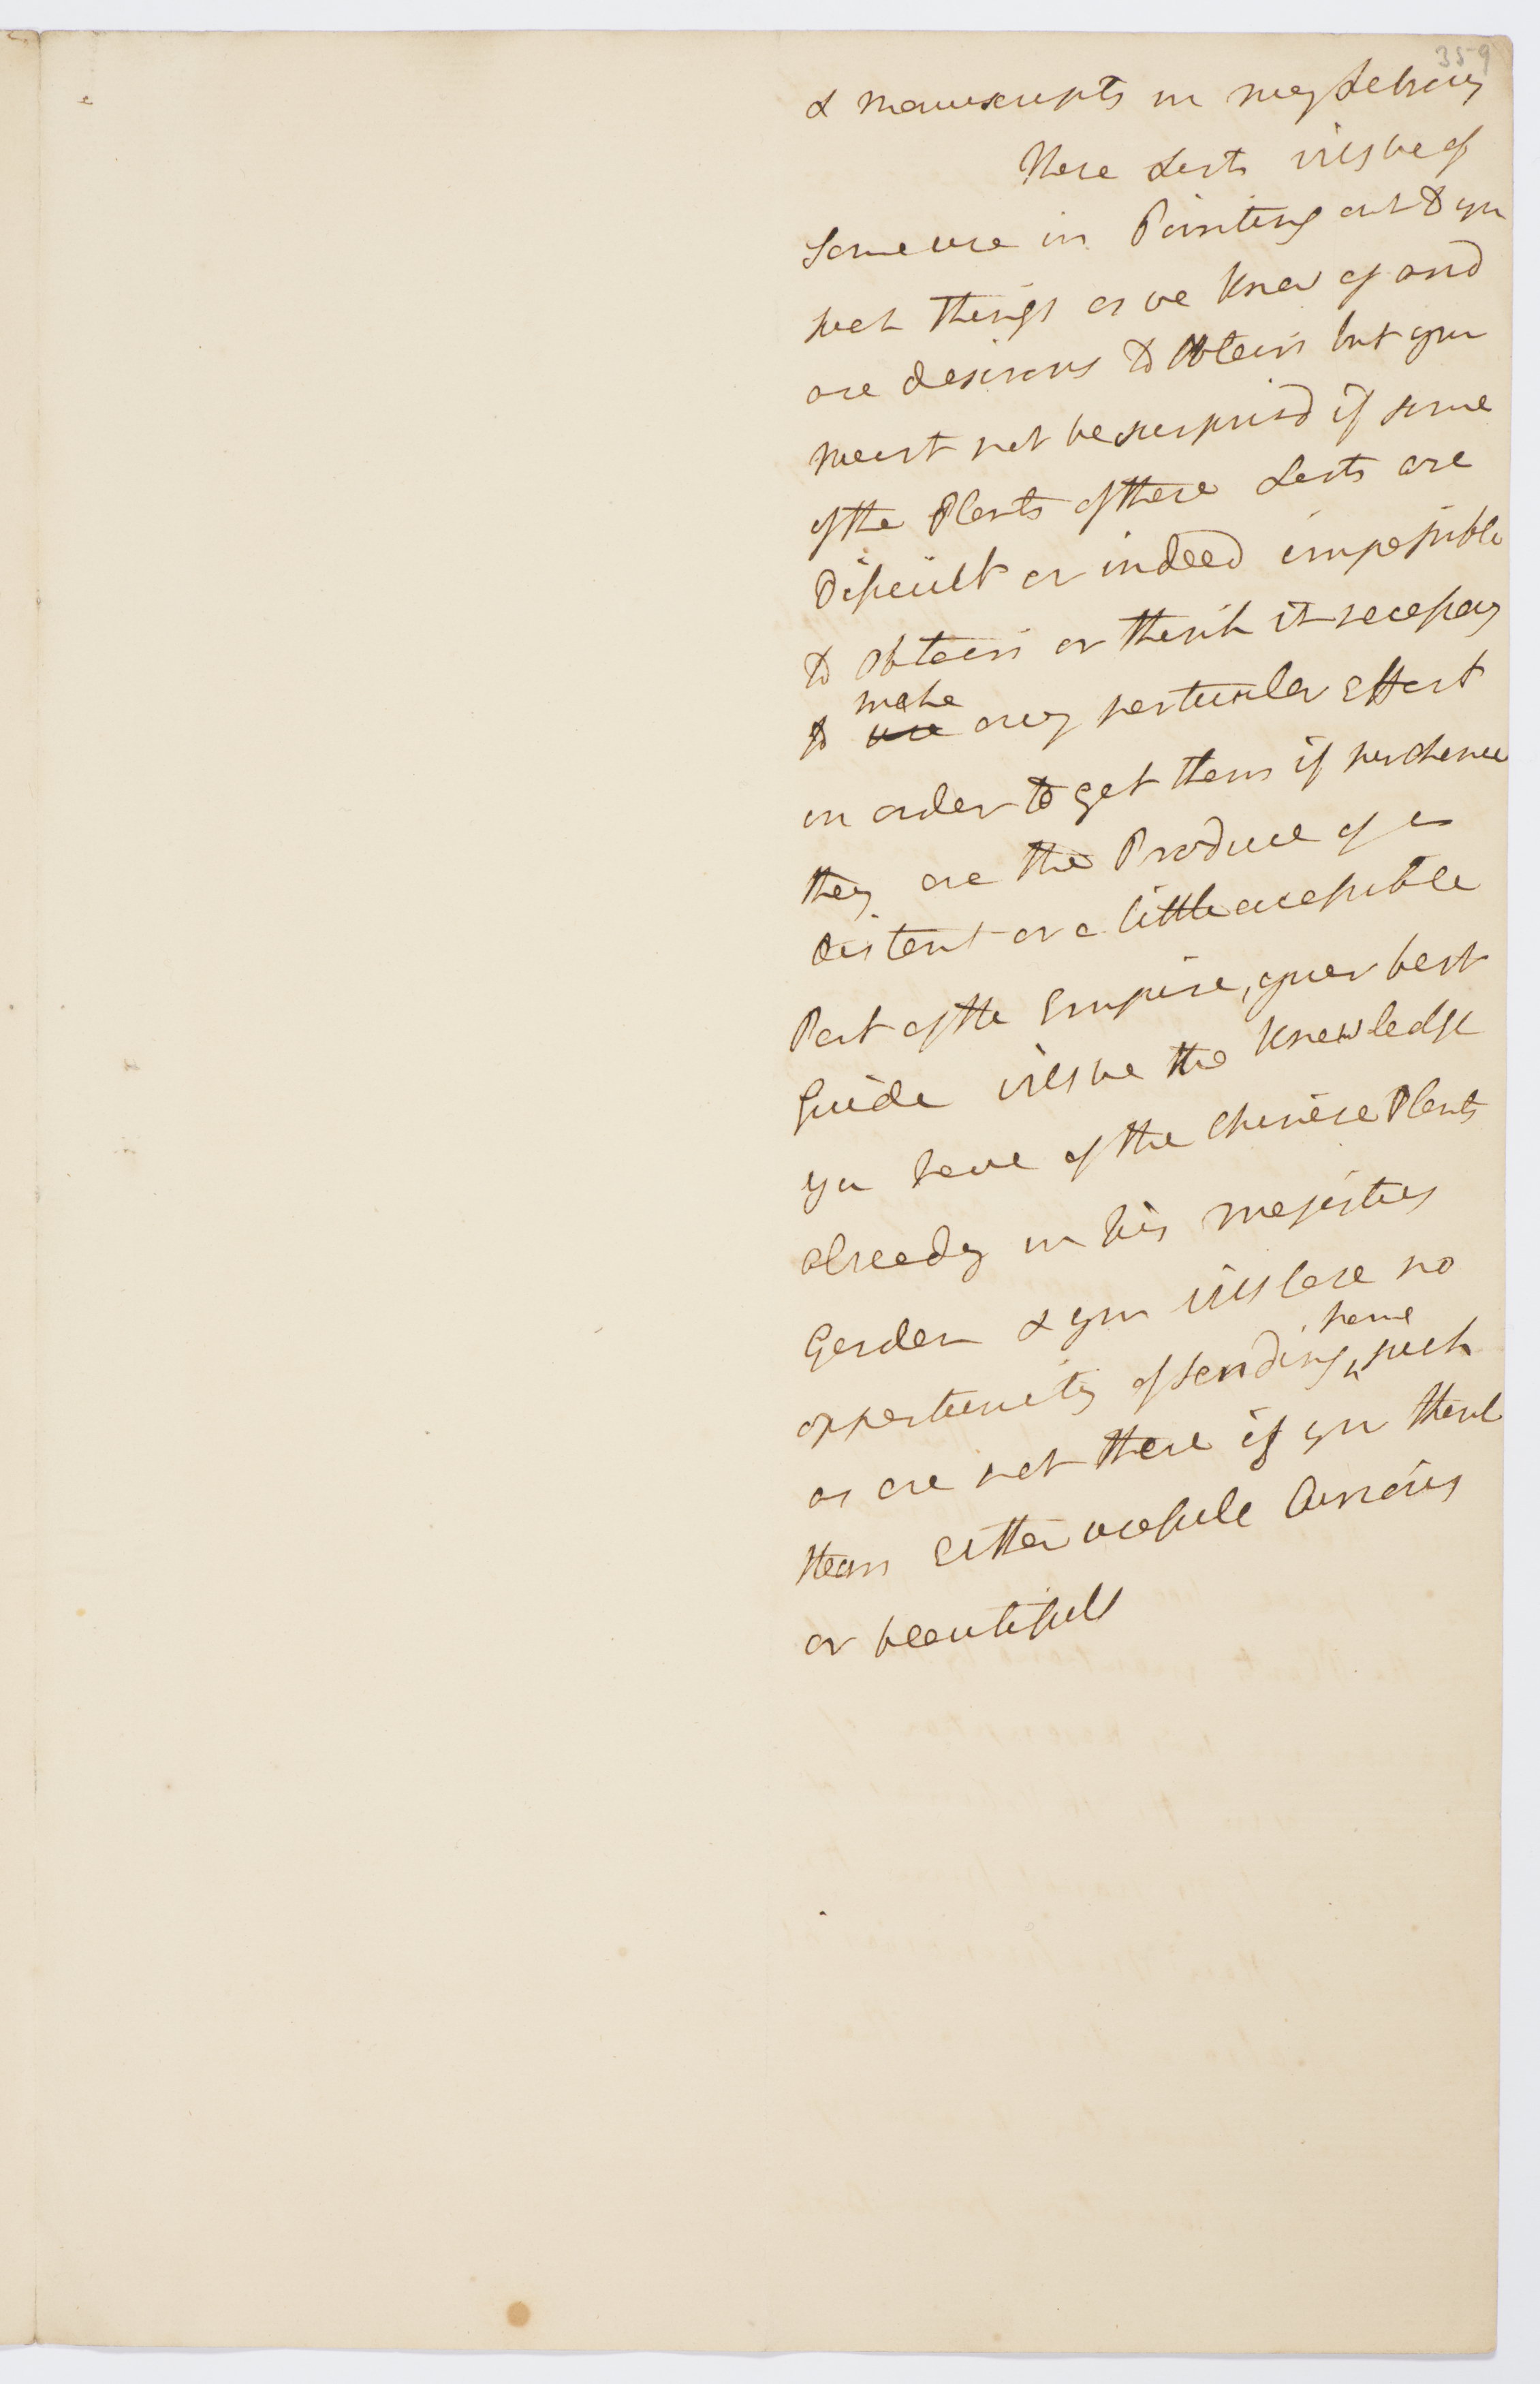 359
& manuscripts in my Library
These Lists will be of
Some use in Pointing out to you
such things as we know of and
are desirous to Obtain but you
must not be surprisd if some
of the Plants of these Lists are
Difficult or indeed impossible
to Obtain or think it necessary
make
to use any particular Effort
in order to get them if perchance
they are the Produce of a
distant or a little accessible
Part of the Empire, your best
Guide will be the knowledge
you have of the Chinese Plants
already in his majesties
Garden & you will lose no
home
opportunity of sending ^ such
as are not there if you think
them Either usefull Curious
or beautifull